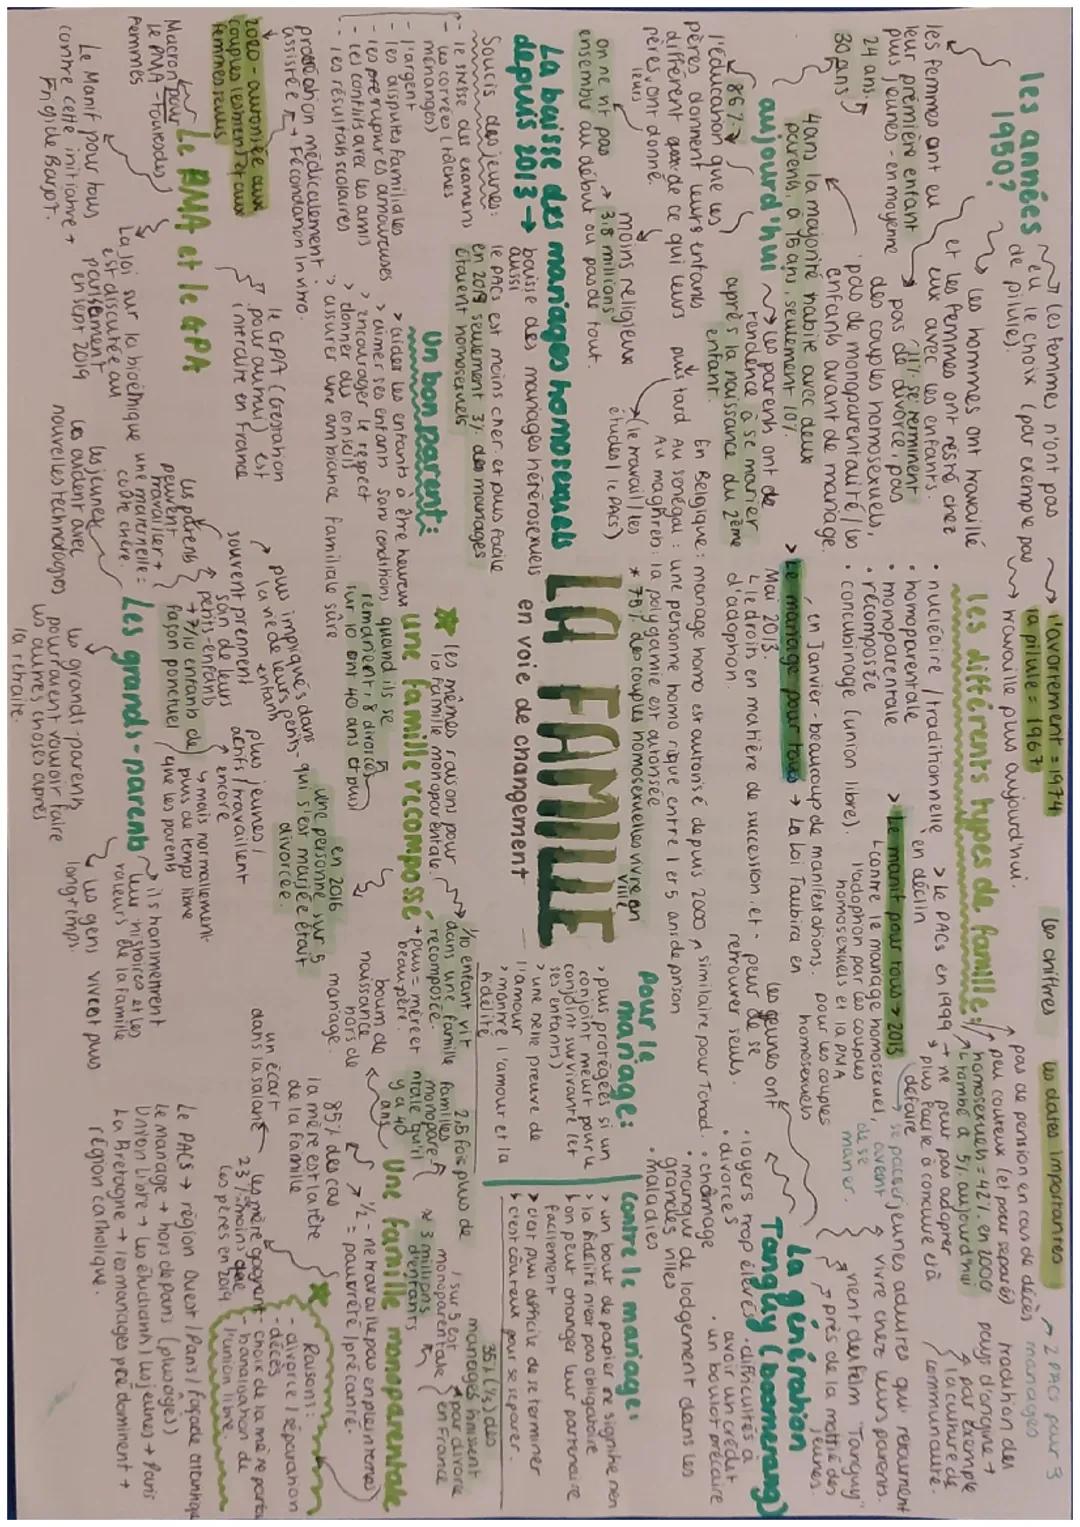 les années 1950?
les femmes n'ont pas
eu le choix (par exemple pas
de pilule).
l'avortement = 1974
la pilule = 1967
travaille plus aujourd'hui.
les hommes ont travaillé
et les femmes ont resté chez
eux avec les enfants.
les femmes ont eu
leur première enfant
plus jeunes - en moyenne
24 ans.
30 ans
11% se terminent
pas de divorce, pas
des couples homosexuels,
pas de monoparentalité / les
enfants avant de mariage.
aujourd'hui
40ans la majorité habite avec deux
parents, à 15 ans, seulement 10%.
les parents ont de
tendence à se marier
après la naissance du 2ème
enfant.
86%
l'éducation que les
pères donnent leurs enfants
different que de ce qui leurs
pères vont donné.
leurs
moins religieux
plus tard
(le travail / les
études / le PACS)
on ne vit pas
ensemble au début ou pas de tout.
3.8 millions
les chiffres
les dates importantes
les différents types de famille:
• nucléaire / traditionnelle
• homoparentale
• monoparentale
• récomposée
• concubinage (union libre).
en déclin
> Le PACS en 1999
pas de pension en cas de décès
peu couteux (et pour separés)
homosexuels = 42% en 2000
tombé à 5% aujourd'hui
ne peur pas adopter
plus facile à conclure et à
défaire
2 PACS pour 3
mariages
tradition des
pays d'origine →
par exemple
la culture de
communauté.
> Le manif pour tous → 2013
contre le mariage homosexuel,
l'adoption par les couples
homosexuels et la PMA
pour les couples
homosexuels
> Le mariage pour tous → La loi Taubira en
Mai 2013.
en Janvier - beaucoup de manifestations.
le droit en matière de succession et
d'adoption.
En Belgique: mariage homo est autorisé depuis 2000
Au sénégal: une personne homo risque entre 1 et 5 ans de prison
similaire pour Tchad.
Au maghreb: la polygamie est autorisée
* 75% des couples homosexuelles vivre en
ville
La génération
Tanguy (boomerang)
jeunes adultes qui retournent
vivre chez leurs parents.
vient des film "Tanguy"
près de la moitié des
jeunes.
les jeunes ont
peur de se
retrouver seuls.
avant
de se
marier.
• loyers trop élevés
• divorces
• chômage
• manque de lodgement dans les
grandes villes
• maladies
• difficultés à
avoir un crédit
• un boulot précaire
LA FAMILLE
en voie de changement
La baisse des mariages homosexuels
depuis 2013 →
baisse des mariages hétérosexuels
aussi
le PACS est moins cher et plus facile
en 2019 seulement 3% des mariages
étaient homosexuels
Soucis des jeunes:
- le stresse des examens
- les corvées (tâches
ménagères)
- l'argent
- les disputes familiales
- les ruptures amoureuses
- les conflits avec les amis
- les résultats scolaires
Un bon parent:
> aider les enfants à être heureux
> aimer ses enfants sans conditions
> encourager le respect
> donner des conseils
> assurer une ambiance familiale sûre
Pour le
mariage:
> plus protégées si un
conjoint meurt pour le
conjoint survivant (et
ses enfants)
> une belle preuve de
l'amour
> montre l'amour et la
fidélité
Contre le mariage:
> un bout de papier ne signifie rien
> la fidélité n'est pas obligatoire
on peut changer leur partenaire
facilement
> c'est plus difficile de se terminer
c'est coûteux pour se séparer.
une famille recomposée
les mêmes raisons pour
la famille monoparentale.
1/10 enfant vit
dans une famille
recomposée.
+ plus = mère et
beau-père.
quand ils se
remarient, 8 divorcés
sur 10 ont 40 ans et plus
en 2016
une personne sur 5
qui s'est mariée était
divorcée.
boum de
naissance
hors de
mariage.
Une famille monoparentale
2.5 fois plus de
familles
monoparentale qu'il
y a 40
ans
1 sur 5 est
monoparentale
≈ 3 millions
d'enfants
35% (1/3) des
mariages finissent
par divorce
en France
1/2 - ne travaille pas en plein temps
= pauvreté / précarité.
85% des cas
la mère est la tête
de la famille
un écart
dans la salaire
les mère gagnent
23% moins que
les pères en 2019.
Raisons:
- divorce / séparation
- décès
- choix de la mère
- banalisation de
l'union libre.
Le PMA et le GPA
procréation médicalement
assistée → Fécondation In vitro.
2020 - autorisée aux
couples lesbiens et aux
femmes seules
Macron pour
le PMA - toutes des
femmes
Le Manif pour tous
contre cette initiative →
Frigide Barjot.
La loi sur la bioéthique
est discutée au
parlement
en sept 2019
le GPA (Gestation
pour autrui) est
interdite en France
Les grands-parents
plus impliqués dans
la vie de leurs petits-
enfants
souvent prennent
soin de leurs
petits-enfants
→ 7/10 enfants de
façon ponctuel
les parents
peuvent
travailler +
une maternelle =
coûte chère.
plus jeunes /
actifs / travaillent
encore
mais normallement
plus de temps libre
que les parents
les jeunes
les aident avec
nouvelles technologies
ils transmettent
leur histoires et les
valeurs de la famille
les gens vivent plus
longtemps.
les grands-parents
pourraient vouloir faire
les autres choses après
la retraite.
Le PACS → région Ouest / Paris / façade atlantique
Le mariage → hors de paris (plus âgés)
Union libre → les étudiants / les jeunes → Paris
La Bretagne → les mariages prédominent →
région catholique.